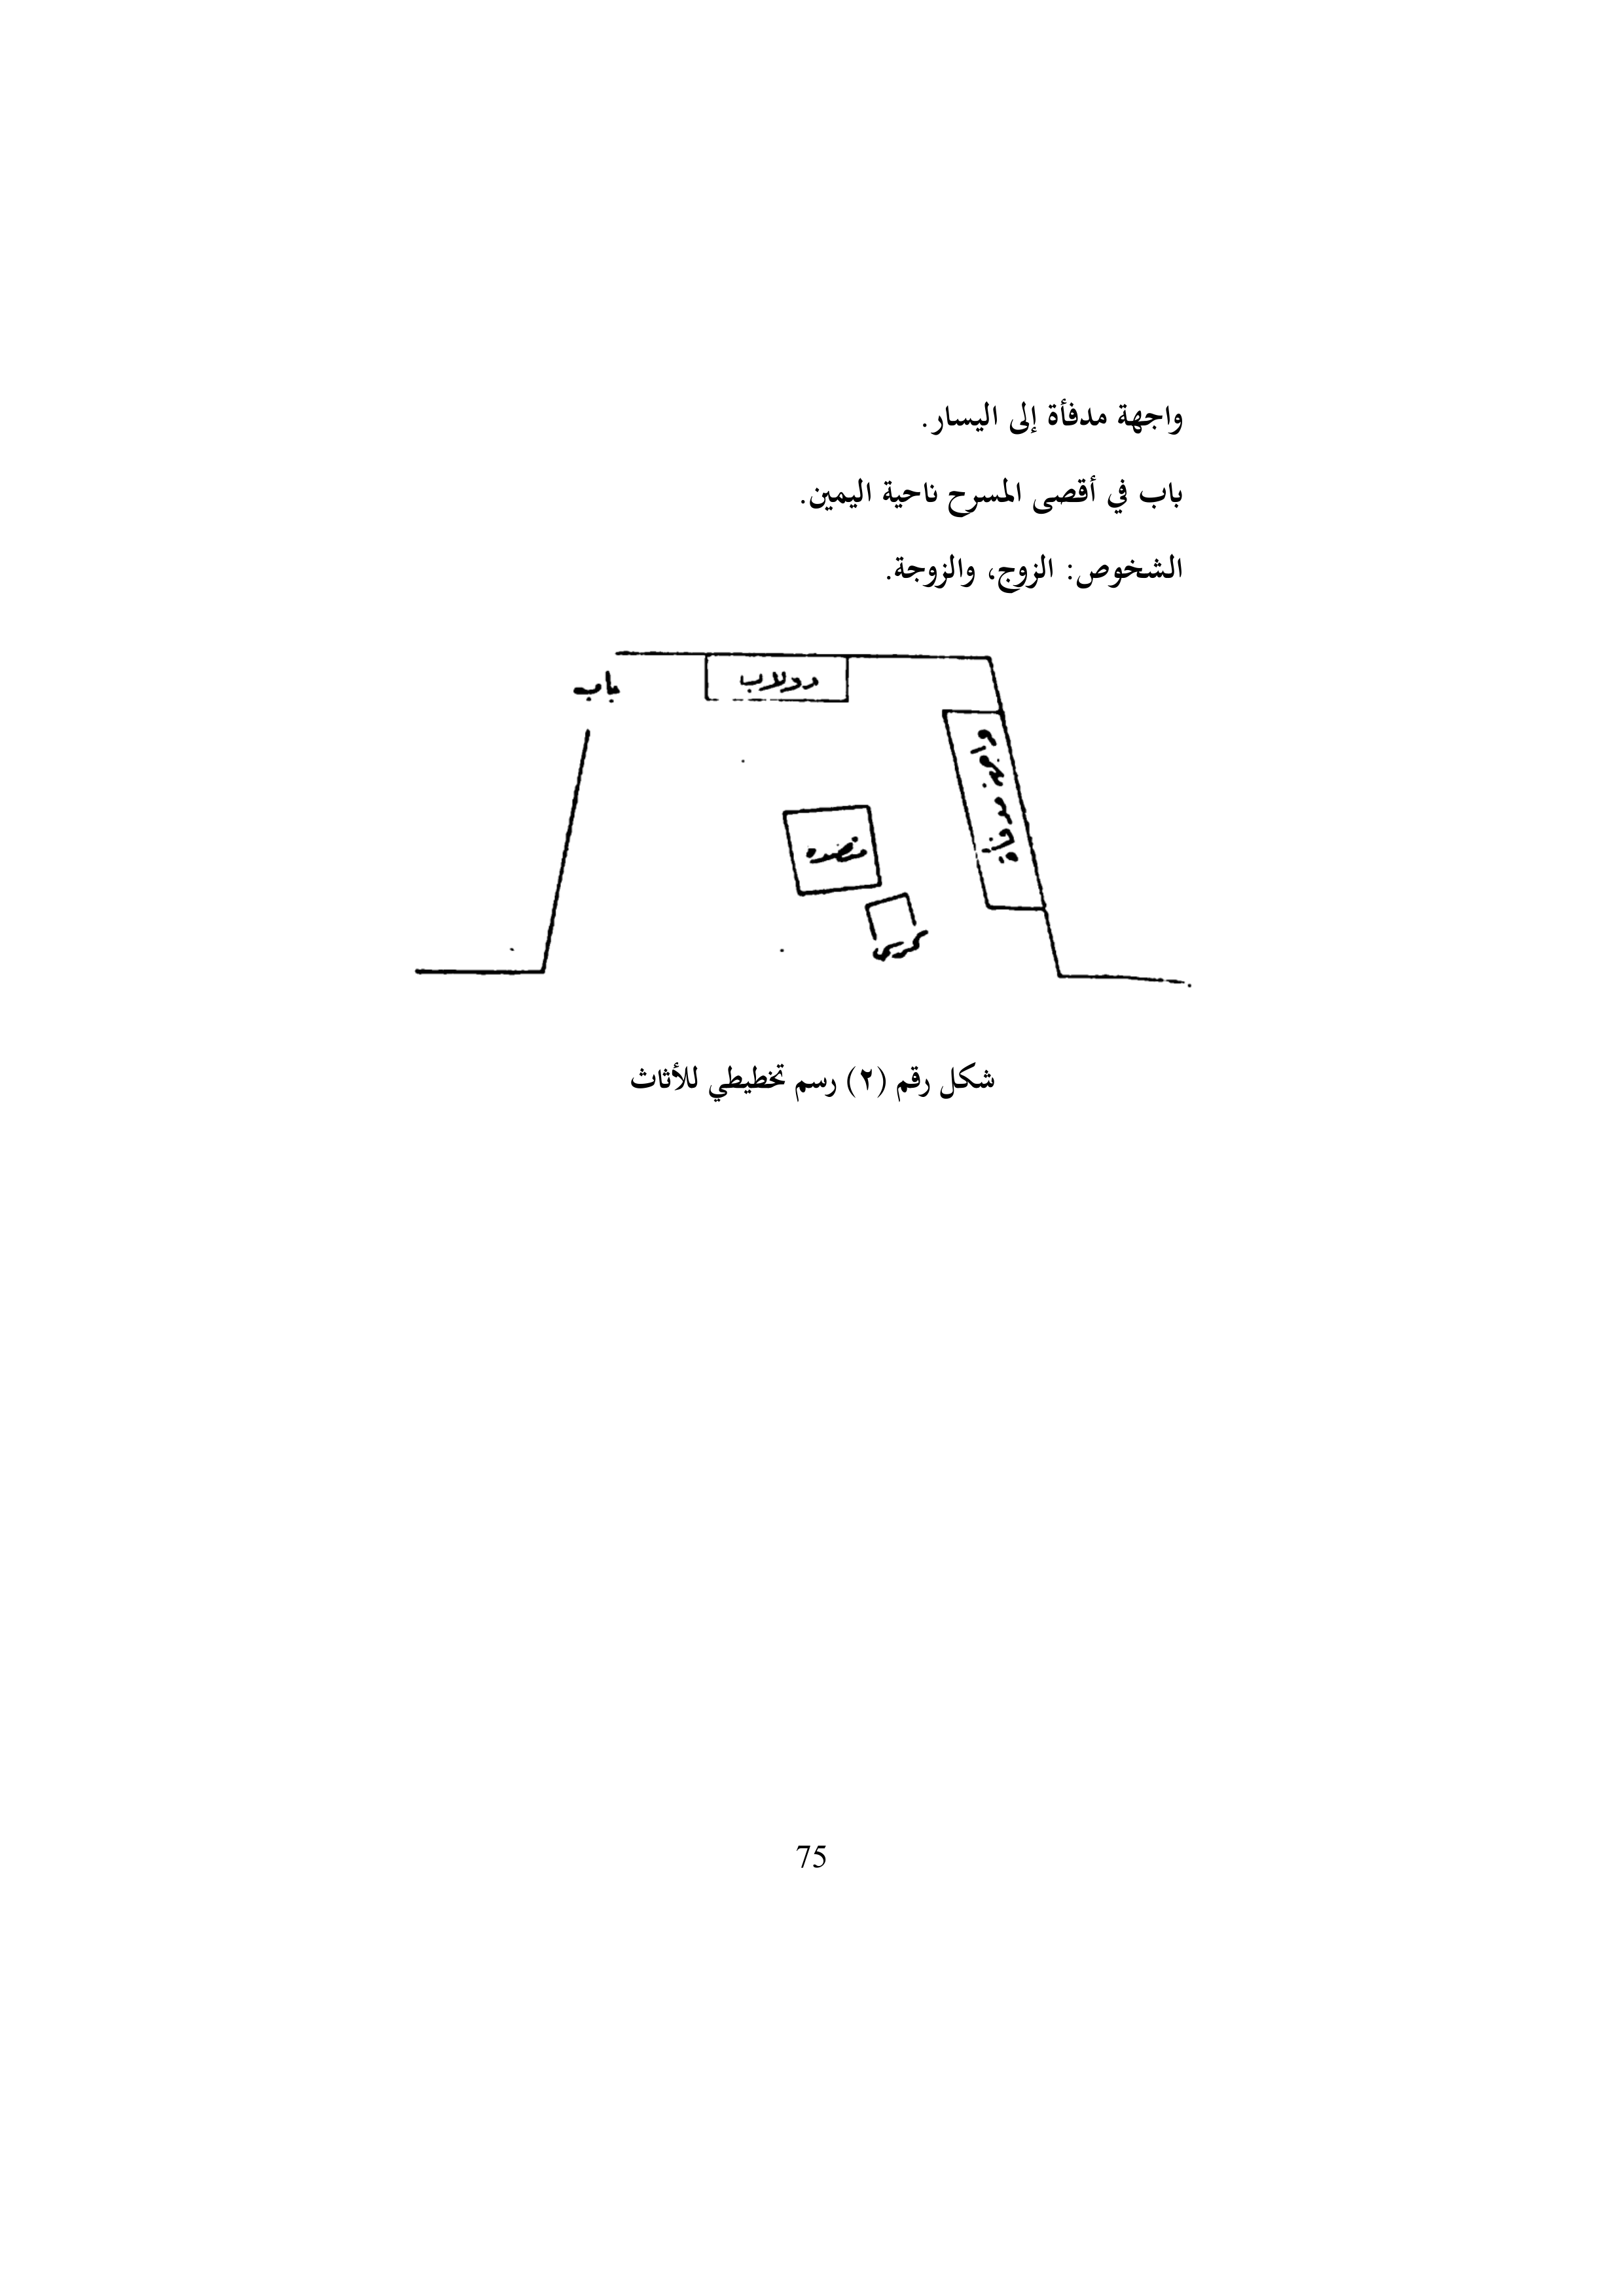 واجهة مدفأة إلى اليسار.
باب في أقصى المسرح ناحية اليمين.
الشخوص: الزوج، والزوجة.
دولاب
باب
واجهة مدفأة
منضده
كرسي
شكل رقم (٢) رسم تخطيطي للأثاث
75